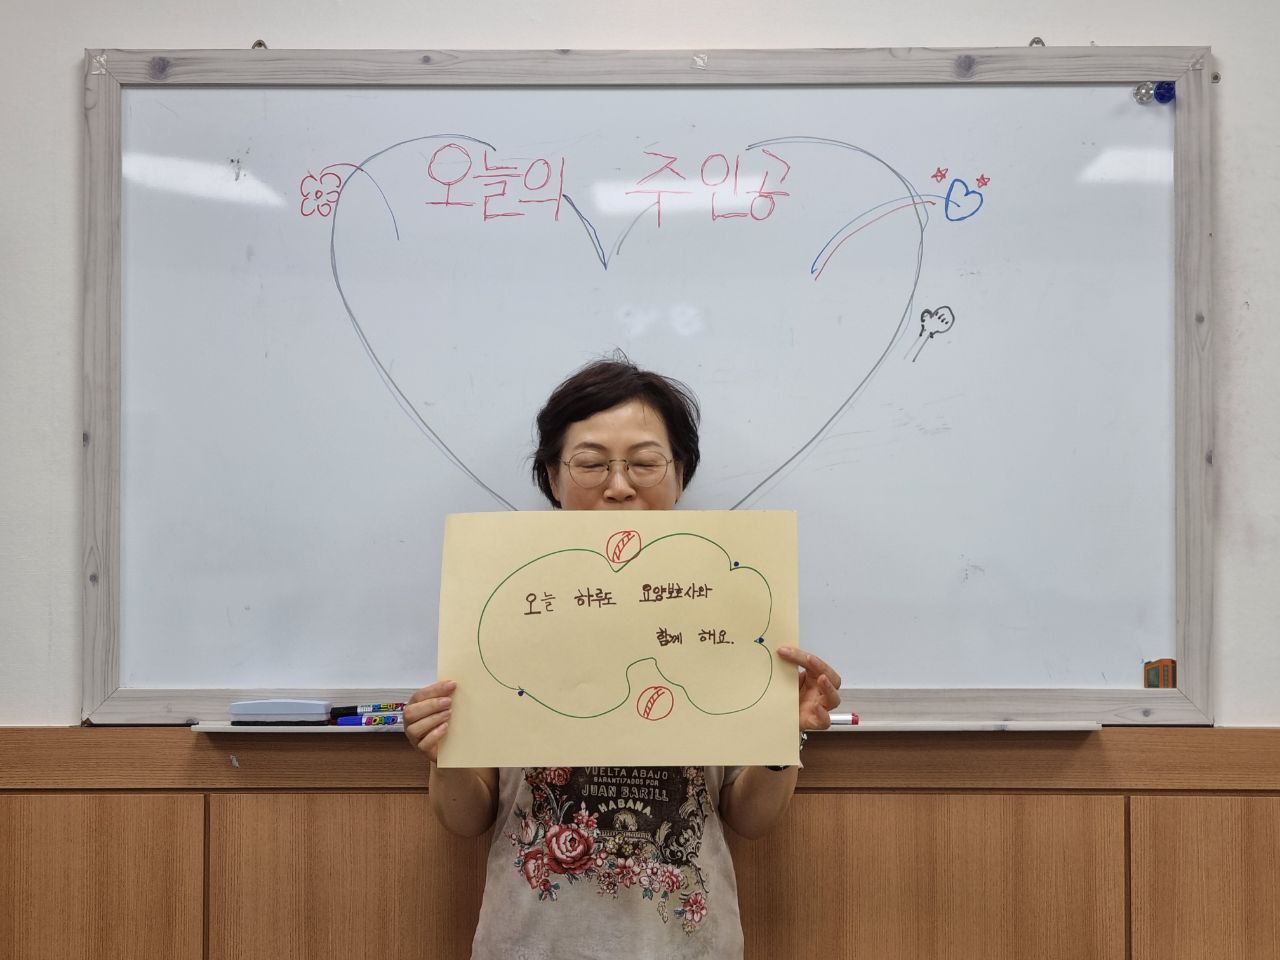 오늘의 주인공
오늘 하루도 요양보호사와
함께 해요.
VUELTA ABAJO
GARANTIZADOS POR
JUAN BARILL
HABANA